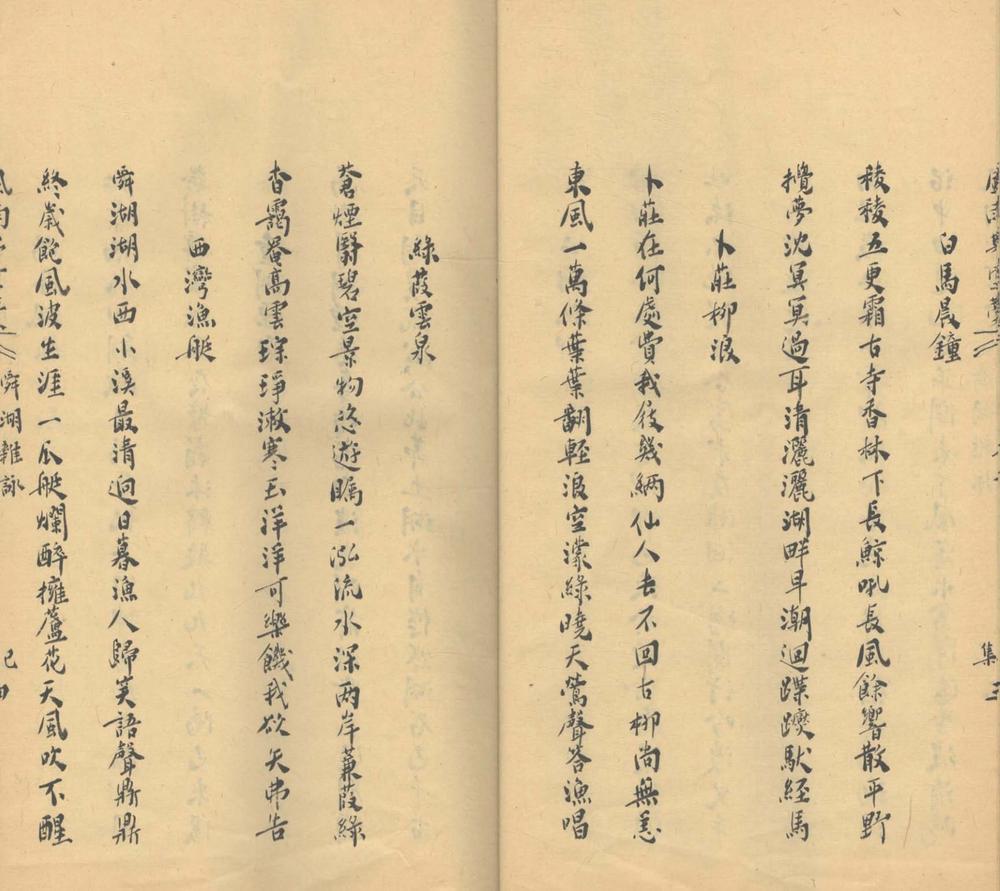 白馬晨鐘
稜稜五更霜古寺香林下長鯨吼長風餘響散平野
攪夢沈冥冥過耳清灑灑湖畔早潮迴蹀躞馱經馬
卜莊柳浪
卜莊在何處費我屐幾緉仙人去不回古柳尚無恙
東風一萬條葉葉翻輕浪空濛綠曉天鶯聲答漁唱
綠葭雲泉
蒼煙翳碧空景物恣遊矚一泓流水深兩岸蒹葭綠
杳靄罨高雲琮琤漱寒玉洋洋可樂饑我欲矢弗告
西灣漁艇
舜湖湖水西小溪最清迥日暮漁人歸笑語聲鼎鼎
終歲飽風波生涯一瓜艇爛醉擁蘆花天風吹不醒
舜湖雜詠
集